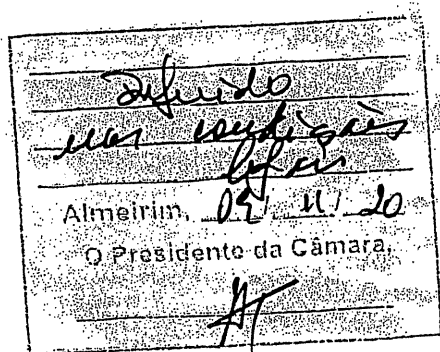 Deferido
nas condições
legais
Almeirim, 09/11/20
O Presidente da Câmara,